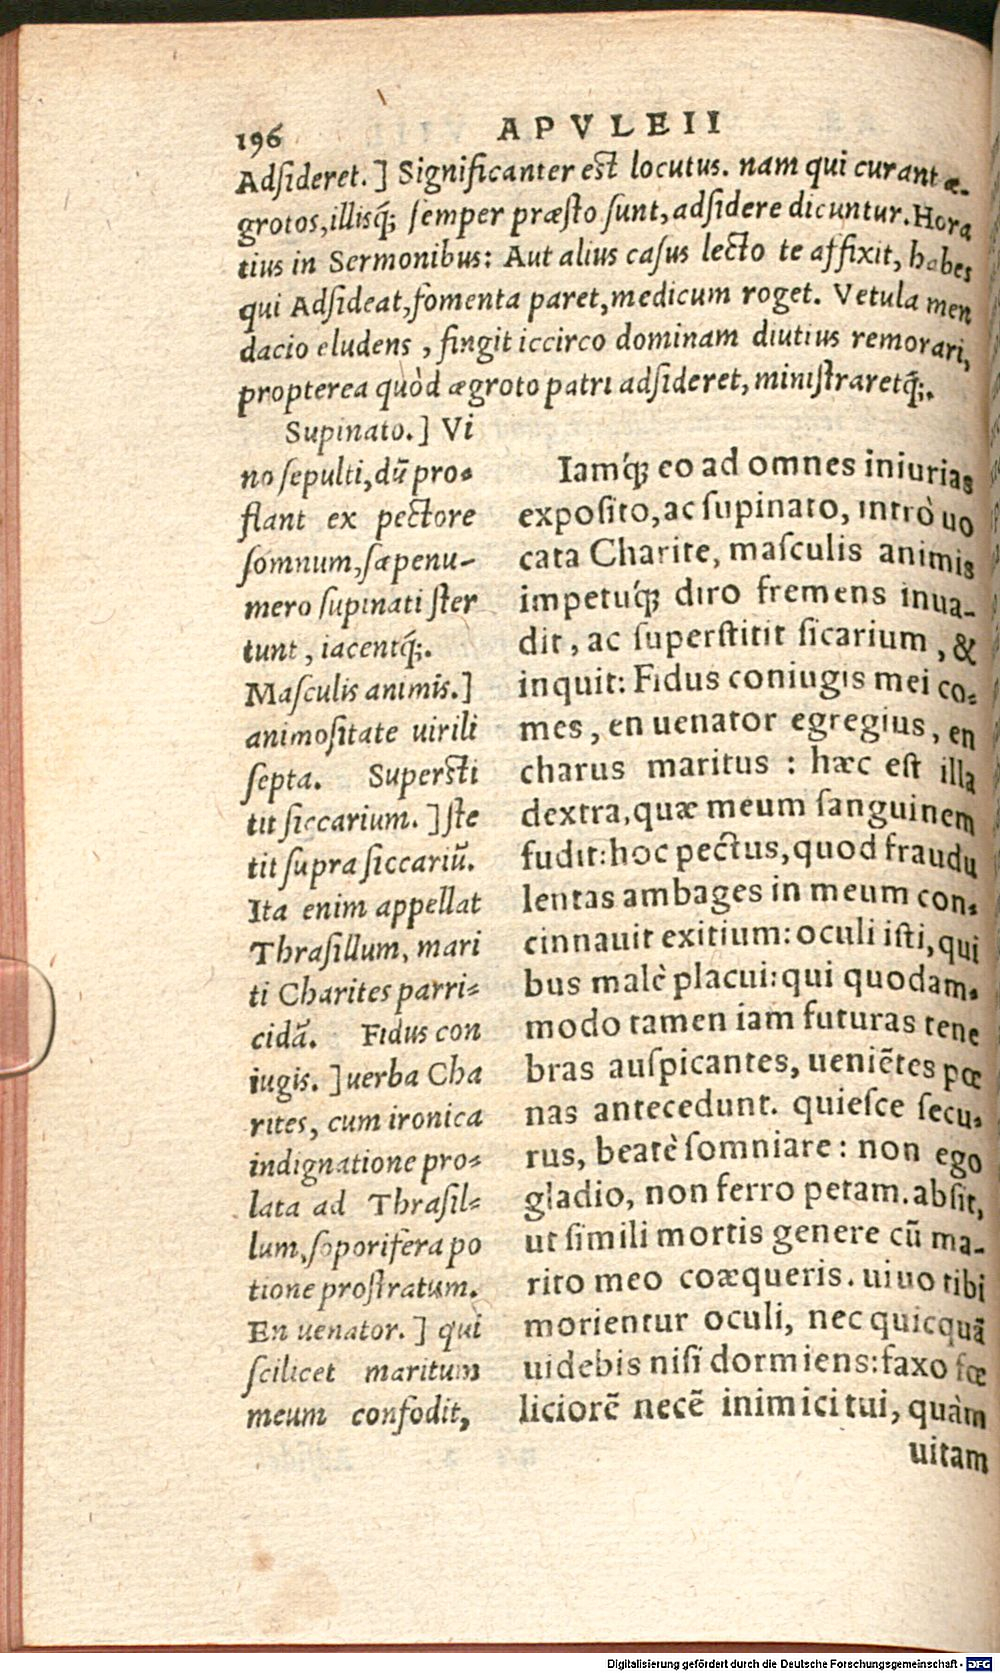 196 APVLEII
Adſideret.] Significanter eſt locutus. nam qui curant æ-
grotos, illisq́; ſemper præſto ſunt, adſidere dicuntur. Hora
tius in Sermonibus: Aut alius caſus lecto te affixit, habes
qui Adſideat, fomenta paret, medicum roget. Vetula men
dacio eludens, fingit iccirco dominam diutius remorari,
propterea quòd ægroto patri adſideret, miniſtraretq́;.
Supinato.] Vi
no ſepulti, dū pro-
flant ex pectore
ſomnum, ſæpenu-
mero ſupinati ſter
tunt, iacentq́;.
Maſculis animis.]
animoſitate uirili
ſepta. Superſti
tit ſiccarium.] ſte
tit ſupra ſiccariū.
Ita enim appellat
Thraſillum, mari
ti Charites parri-
cidā. Fidus con
iugis.] uerba Cha
rites, cum ironica
indignatione pro-
lata ad Thraſil-
lum, ſoporifera po
tione proſtratum.
En uenator.] qui
ſcilicet maritum
meum confodit,
Iamq́; eo ad omnes iniurias
expoſito, ac ſupinato, intrò uo
cata Charite, maſculis animis
impetuq́; diro fremens inua-
dit, ac ſuperſtitit ſicarium, &
inquit: Fidus coniugis mei co-
mes, en uenator egregius, en
charus maritus : hæc eſt illa
dextra, quæ meum ſanguinem
fudit: hoc pectus, quod fraudu
lentas ambages in meum con-
cinnauit exitium: oculi iſti, qui
bus malè placui: qui quodam-
modo tamen iam futuras tene
bras auſpicantes, ueniētes pœ
nas antecedunt. quieſce ſecu-
rus, beatè ſomniare : non ego
gladio, non ferro petam. abſit,
ut ſimili mortis genere cū ma-
rito meo coæqueris. uiuo tibi
morientur oculi, nec quicquā
uidebis niſi dormiens: faxo fœ
liciorē necē inimici tui, quàm
uitam
Digitalisierung gefördert durch die Deutsche Forschungsgemeinschaft - DFG